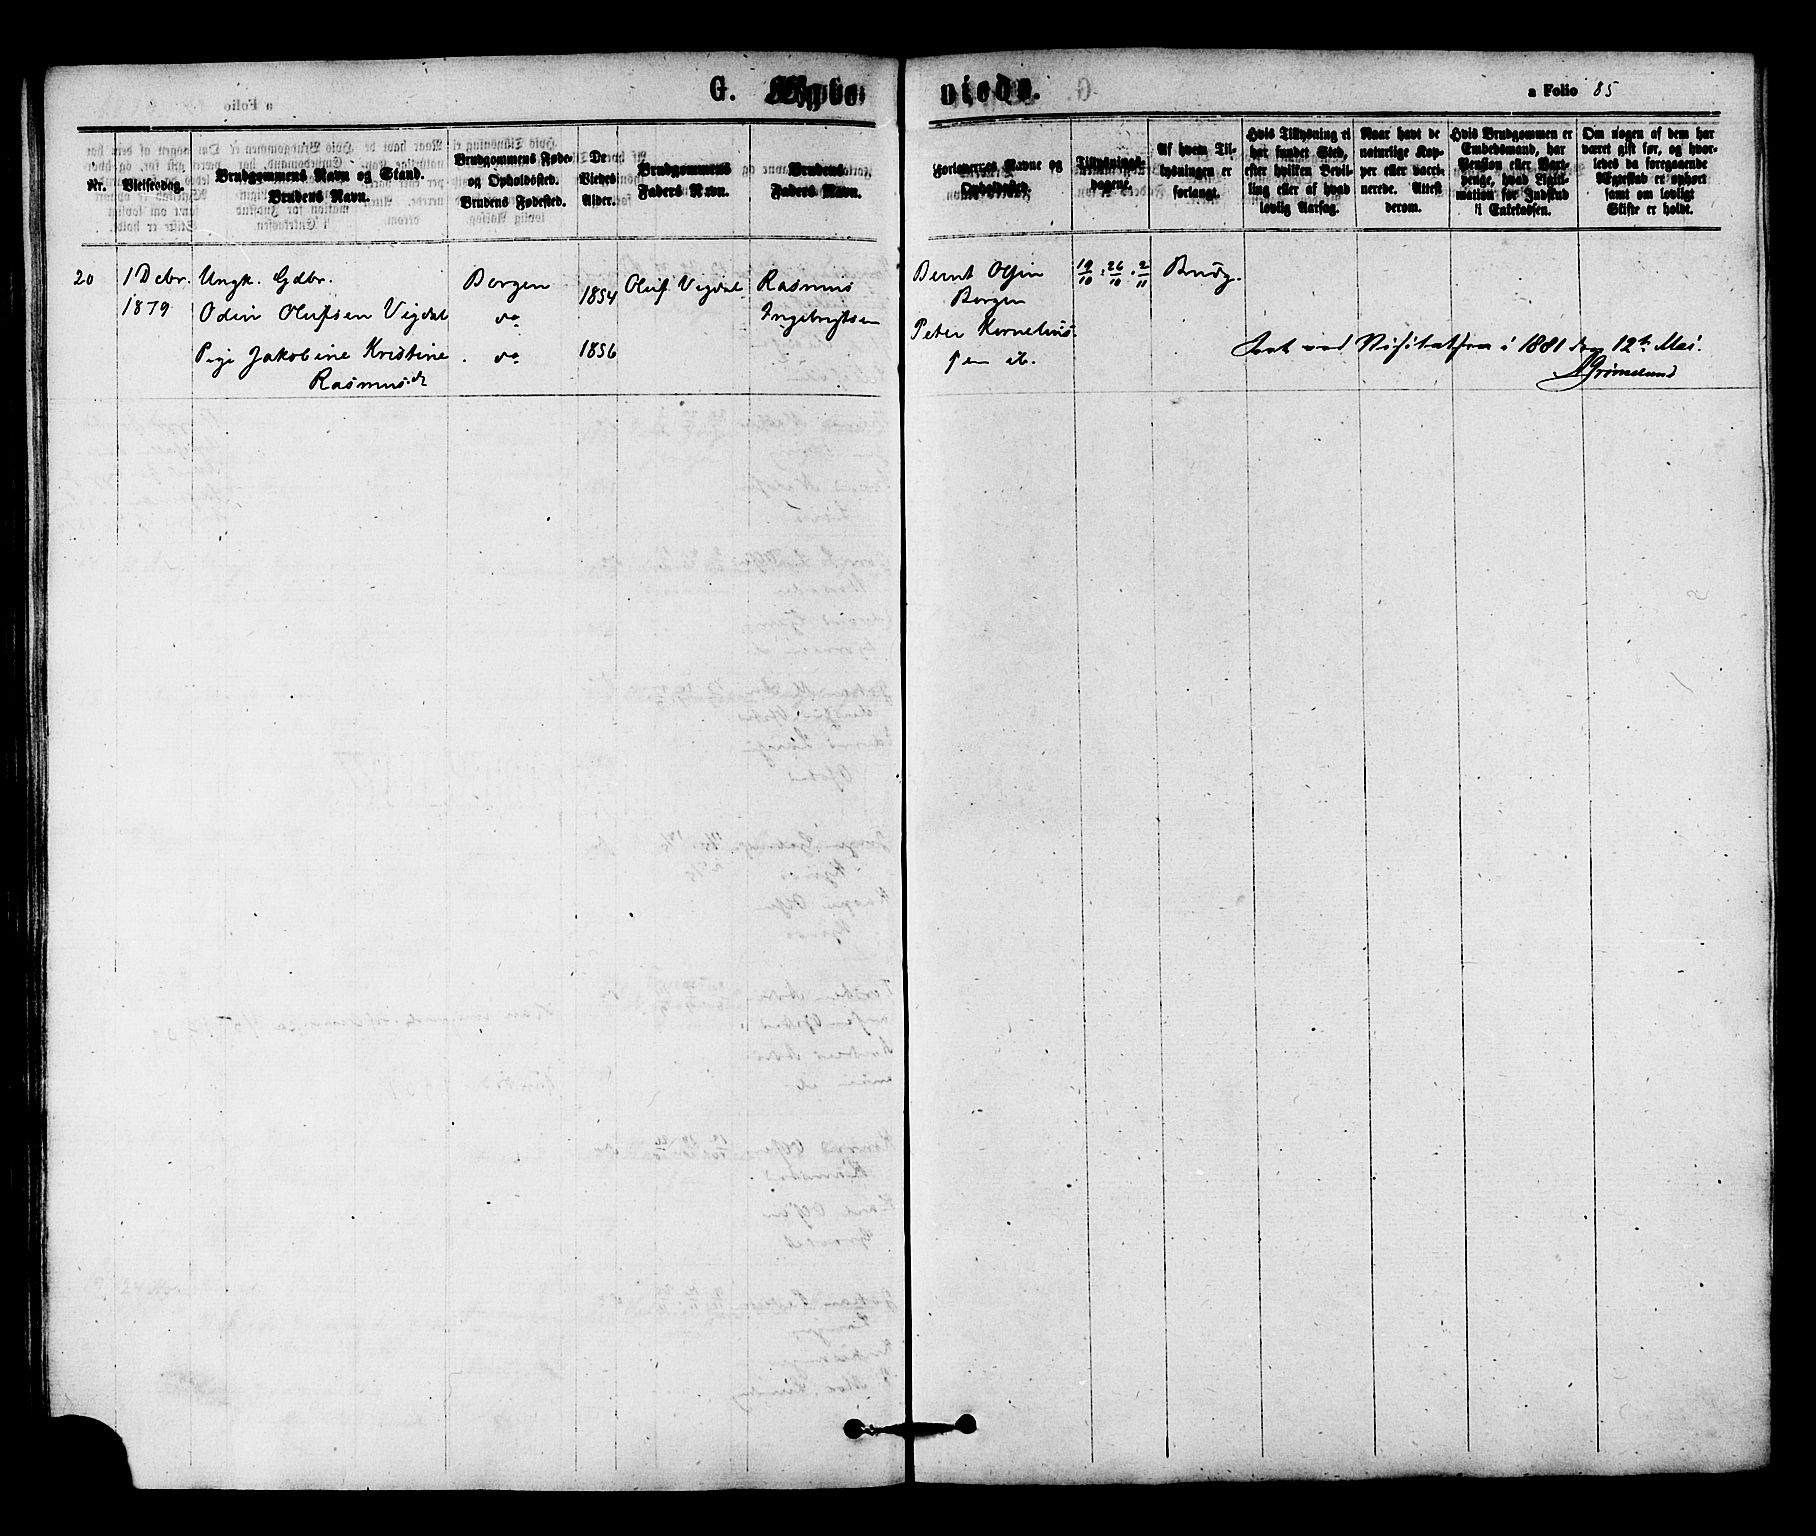 G. Ægte-
viede.
a Folio 85
Nr.
Vielsesdag.
Brudgommens Navn og Stand.
Brudens Navn.
Brudgommens Føde-
og Opholdssted.
Brudens Fødested.
De
Viedes
Alder.
Brudgommens
Faders Navn.
Brudens
Faders Navn.
Forlovernes Navne og
Opholdssted.
Tillysnings-
dagene.
Af hvem Til-
lysningen er
forlangt.
Hvis Tillysning ei
har fundet Sted,
efter hvilken Bevil-
ling eller af hvad
lovlig Aarsag.
Naar havt de
naturlige Kop-
per eller vacci-
nerede. Attest
derom.
Hvis Brudgommen er
Embedsmand, har
Pension eller Vart-
penge, hvad Legiti-
mation for Indskud
i Enkekassen.
Om nogen af dem har
været gift før, og hvor-
ledes da foregaaende
Ægteskab er ophørt
samt om lovligt
Skifte er holdt.
20
1 Debr.
1879
Ungk. Gdbr.
Odin Olufsen Vigdal
Pige Jakobine Kristine
Rasmusdt
Borgen
do
do
1854
1856
Oluf Vigdal
Rasmus
Ingebrigtsen
Bernt Olsen
Borgen
Peter Kornelius
sen ib.
19/10 : 26/10 : 2/11
Brudg.
Seet ved Visitatsen i 1881 den 12te Mai.
Grønnelund